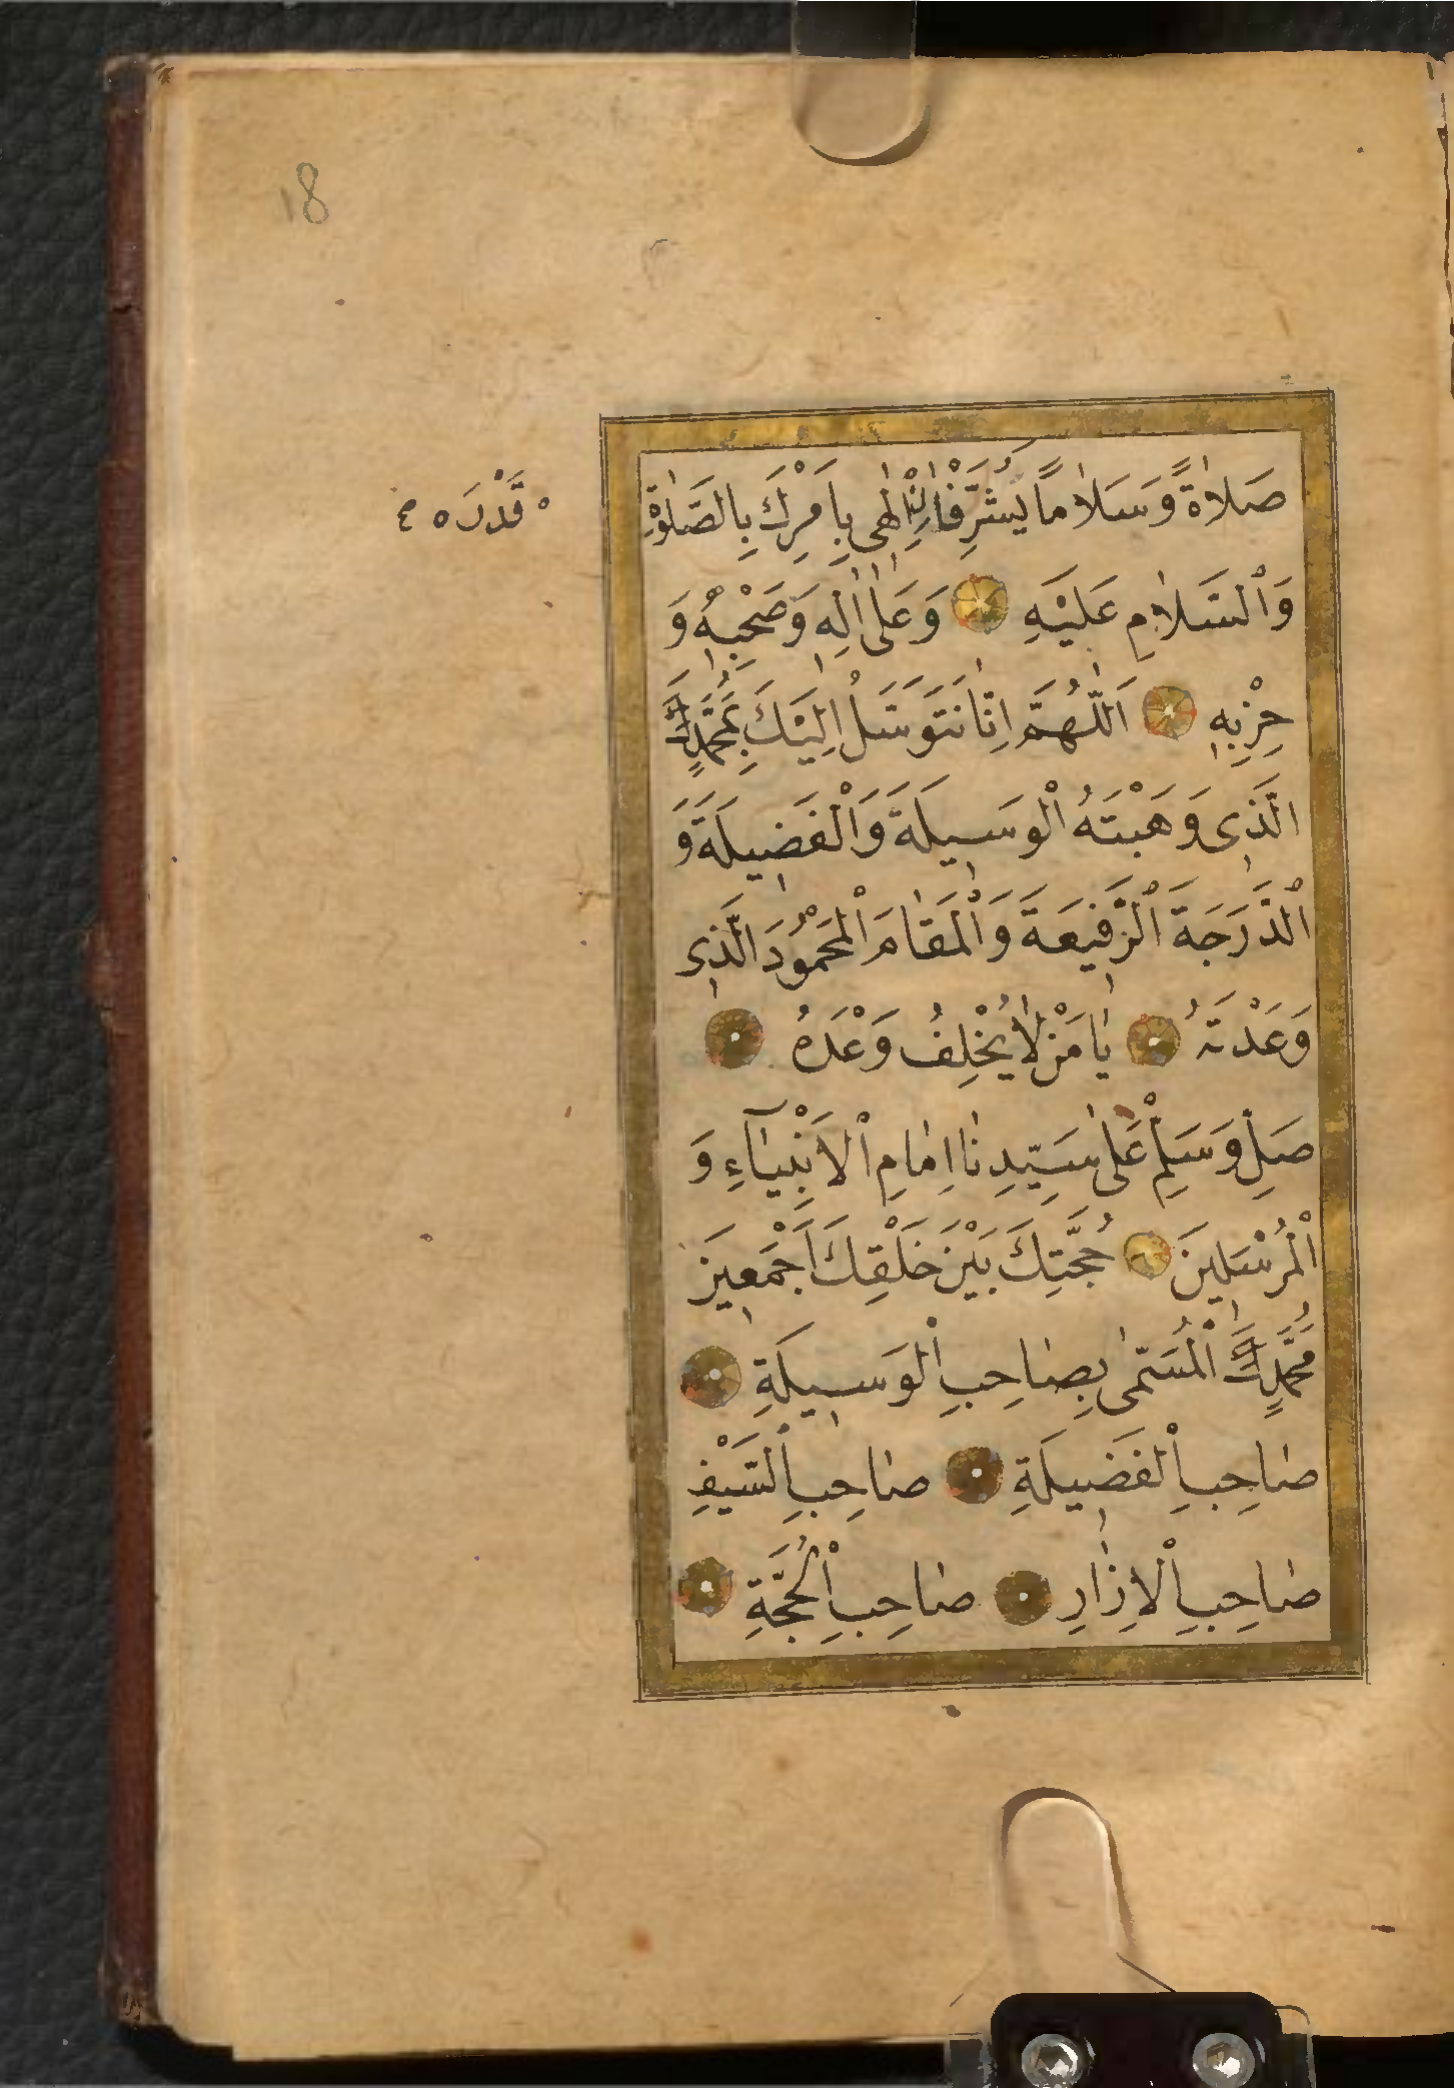 18
قَدْرَه
صَلَاةً وَسَلَامًا يُشَرِّفَانِ اِلٰهِى بِاَمْرِكَ بِالصَّلٰوةِ
وَالْسَّلَامِ عَلَيْهِ وَعَلٰى اٰلِهٖ وَصَحْبِهٖ وَ
حِزْبِهٖ اَللّٰهُمَّ اِنَّا نَتَوَسَّلُ اِلَيْكَ بِمُحَمَّدٍ
الَّذِى وَهَبْتَهُ الْوَسِيلَةَ وَالْفَضِيلَةَ وَ
الْدَّرَجَةَ الْرَّفِيعَةَ وَالْمَقَامَ الْمَحْمُودَ الَّذِى
وَعَدْتَهُ يَا مَنْ لَا يُخْلِفُ وَعْدَهُ
صَلِّ وَسَلِّمْ عَلٰى سَيِّدِنَا اِمَامِ الْاَنْبِيَاءِ وَ
الْمُرْسَلِينَ حُجَّتِكَ بَيْنَ خَلْقِكَ اَجْمَعِينَ
مُحَمَّدٍ الْمُسَمّٰى بِصَاحِبِ الْوَسِيلَةِ
صَاحِبِ الْفَضِيلَةِ صَاحِبِ الْسَّيْفِ
صَاحِبِ الْاِزَارِ صَاحِبِ الْحُجَّةِ